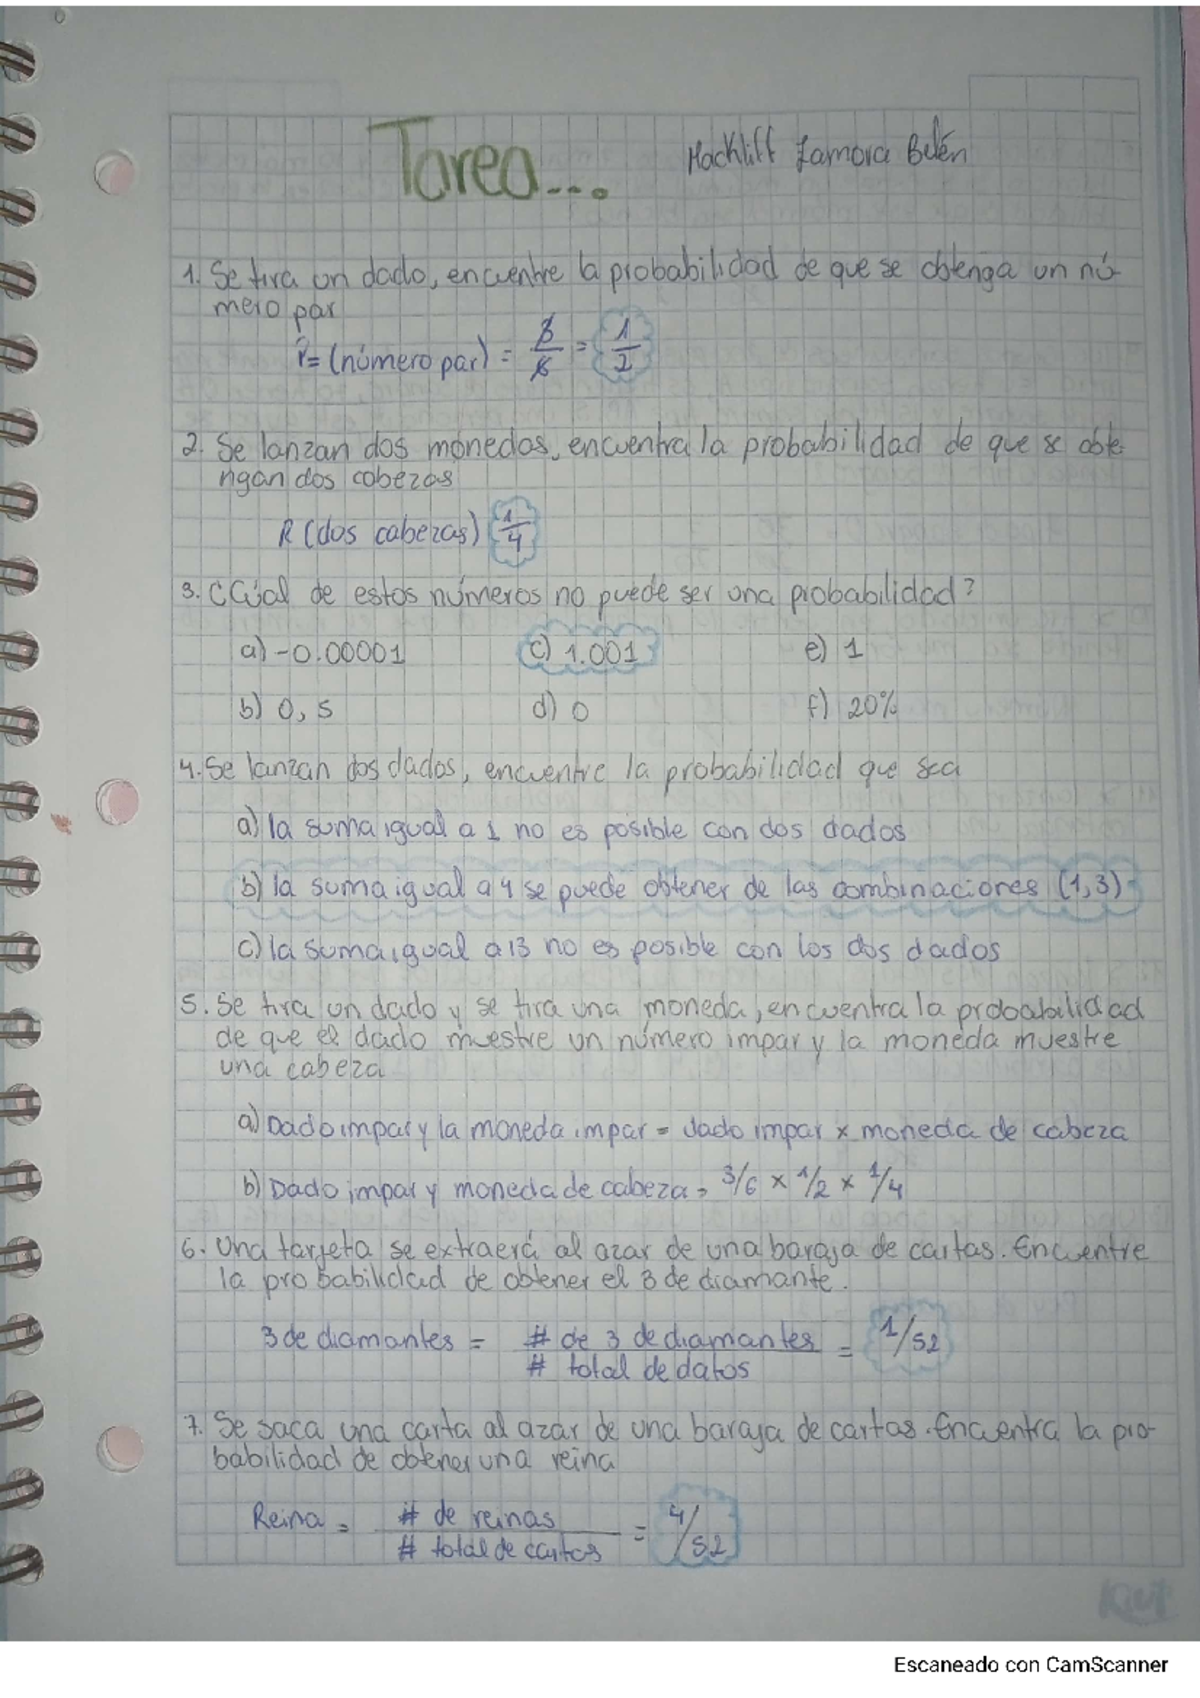 Tarea...
Hackliff Zamora Belén
1. Se tira un dado, encuentre la probabilidad de que se obtenga un nú-
mero par
P= (número par) = 3/6 = 1/2
2. Se lanzan dos monedas, encuentra la probabilidad de que se obte-
ngan dos cabezas
R (dos cabezas) 1/4
3. ¿Cúal de estos números no puede ser una probabilidad?
a) -0.00001 c) 1.001 e) 1
b) 0,5 d) 0 f) 20%
4. Se lanzan dos dados, encuentre la probabilidad que sea
a) la suma igual a 1 no es posible con dos dados
b) la suma igual a 4 se puede obtener de las combinaciones (1,3)
c) la suma igual a 13 no es posible con los dos dados
5. Se tira un dado y se tira una moneda, encuentra la probabilidad
de que el dado muestre un número impar y la moneda muestre
una cabeza
a) Dado impar y la moneda impar = dado impar x moneda de cabeza
b) Dado impar y moneda de cabeza = 3/6 x 1/2 x 1/4
6. Una tarjeta se extraerá al azar de una baraja de cartas. Encuentre
la probabilidad de obtener el 3 de diamante.
3 de diamantes = # de 3 de diamantes = 1/52
# total de datos
7. Se saca una carta al azar de una baraja de cartas. Encuentra la pro-
babilidad de obtener una reina
Reina = # de reinas = 4/52
# total de cartas
Escaneado con CamScanner